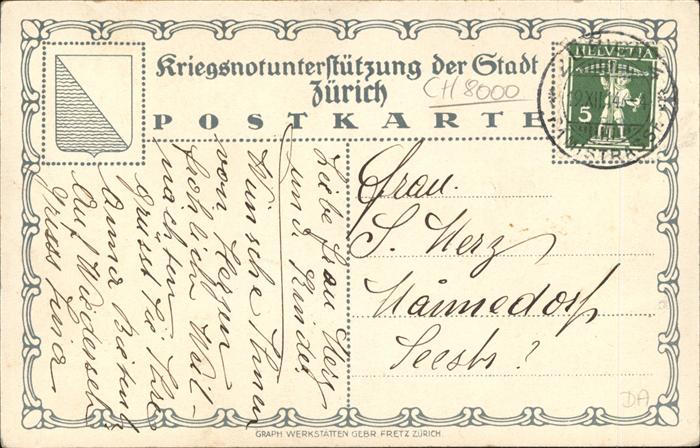 Kriegsnotunterstützung der Stadt
Zürich
CH 8000
POSTKARTE
HELVETIA
5
Liebe Frau Herz
und Kinder
Wünsche Ihnen
von Herzen
fröhlichen Weih-
nachten
grüsst Sie Ihre
Anna
Auf Wiedersehn
Frau.
S. Herz
Männedorf
Seestr?
DA
GRAPH. WERKSTÄTTEN GEBR. FRETZ ZÜRICH.